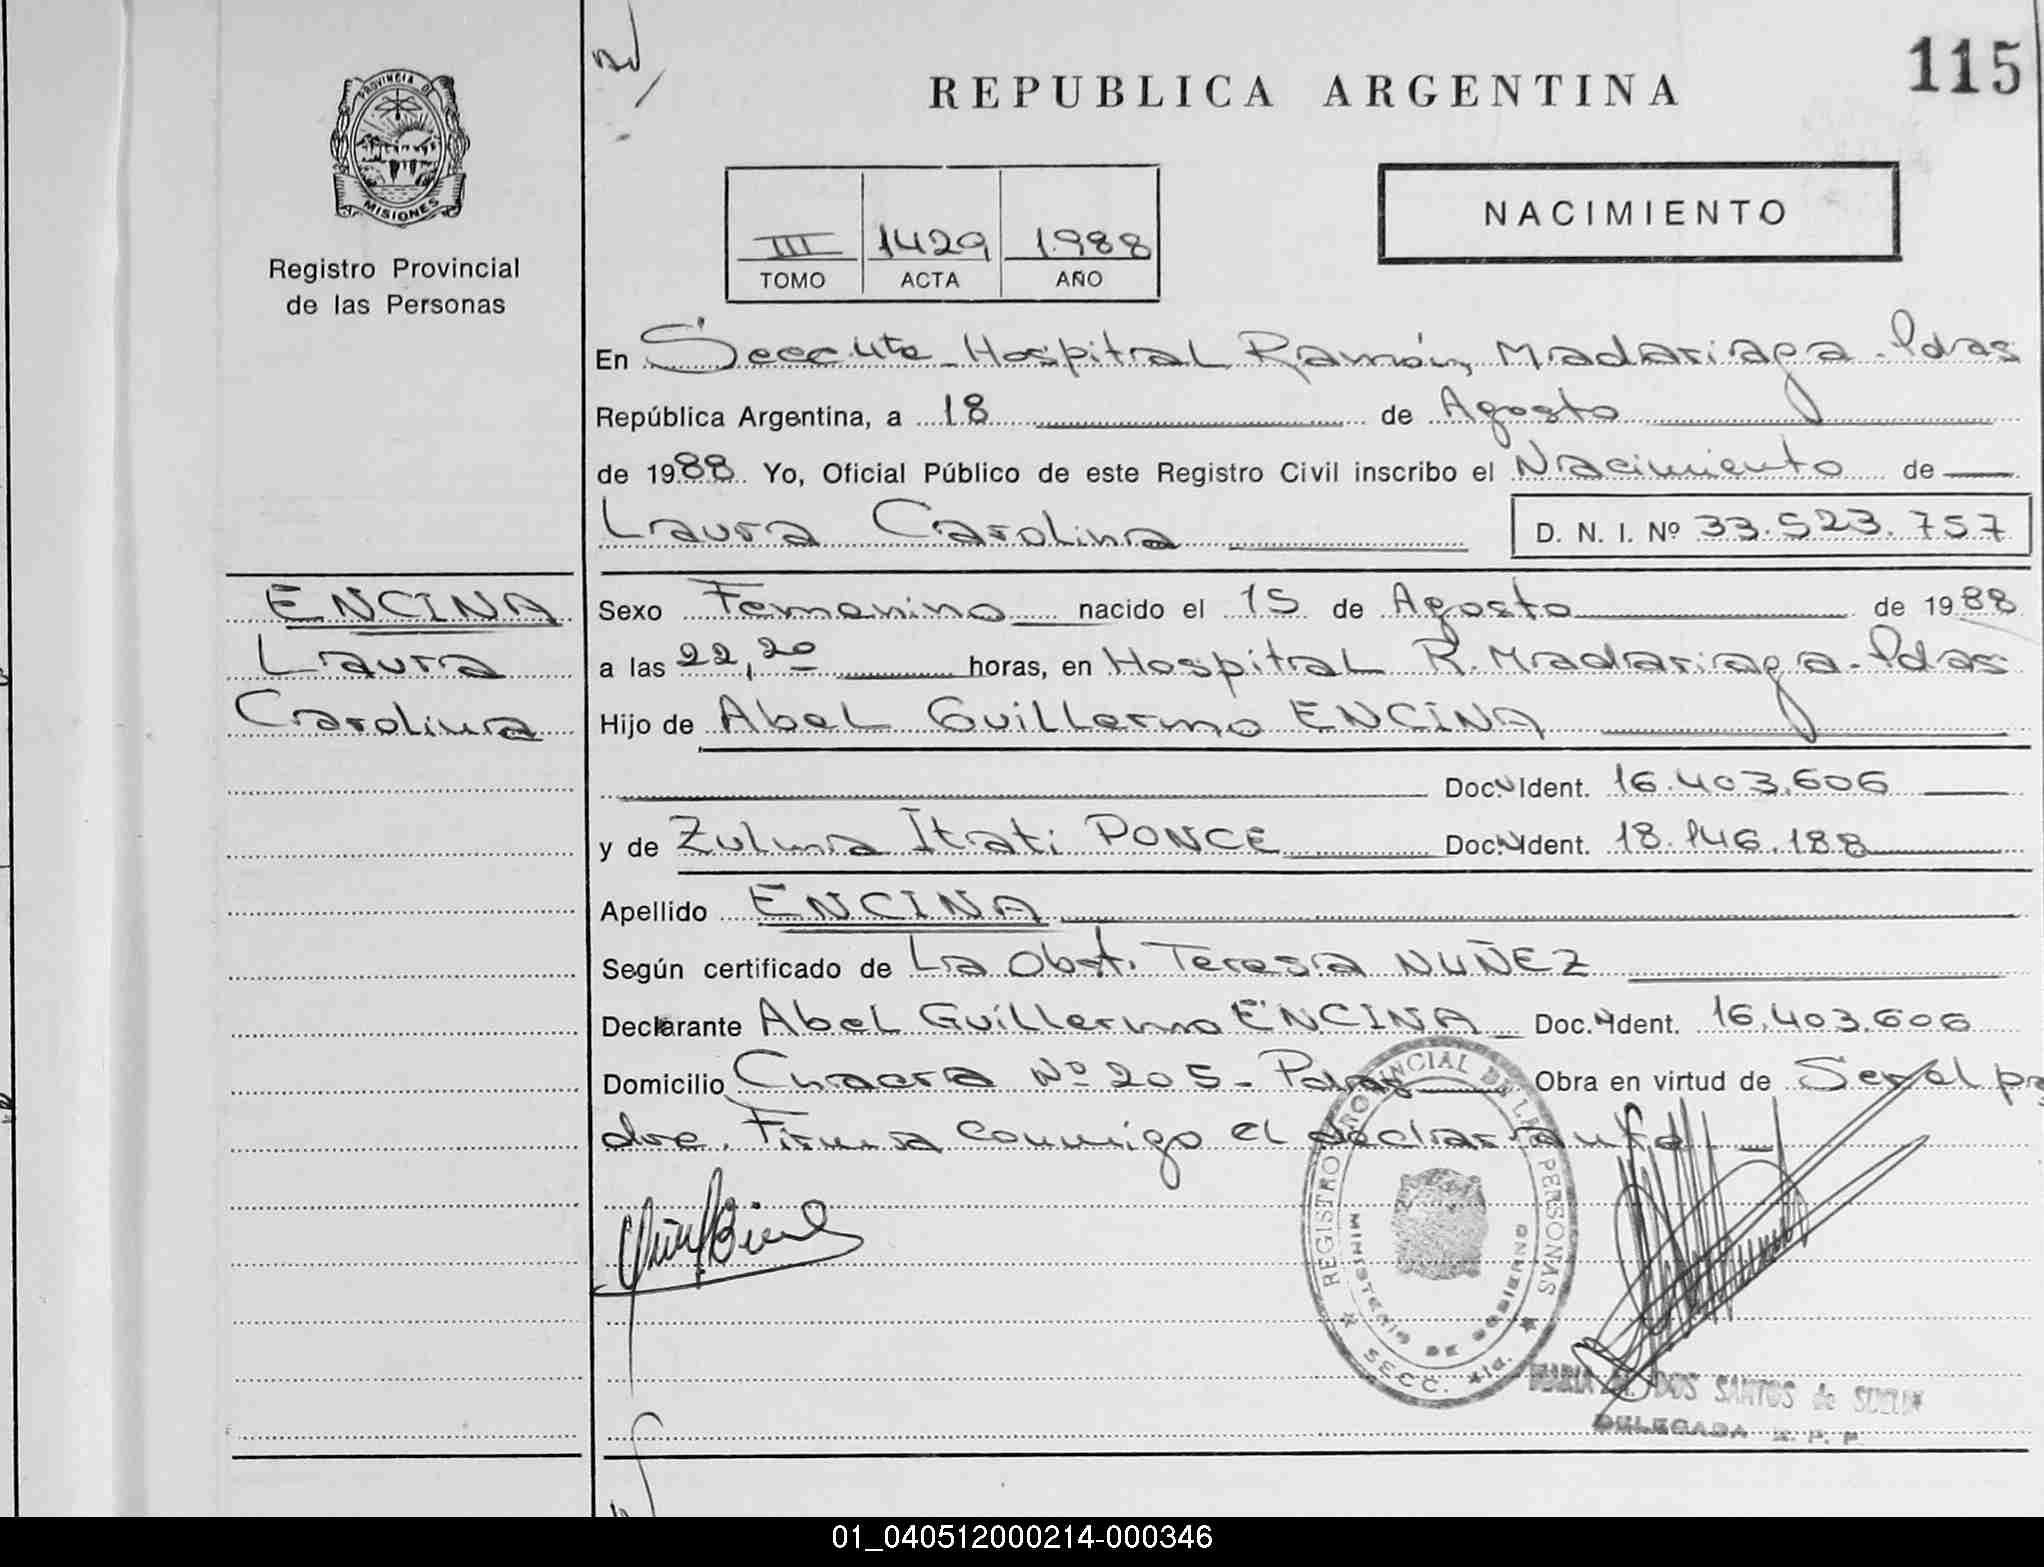 115
REPUBLICA ARGENTINA
NACIMIENTO
PROVINCIA DE
MISIONES
Registro Provincial
de las Personas
III 1429 1988
TOMO ACTA AÑO
En Secc 4ta - Hospital Ramón Madariaga - Pdas
República Argentina, a 18 de Agosto
de 1988. Yo, Oficial Público de este Registro Civil inscribo el Nacimiento de
Laura Carolina D. N. I. Nº 33.523.757
ENCINA
Laura
Carolina
Sexo Femenino nacido el 15 de Agosto de 1988
a las 22,20 horas, en Hospital R. Madariaga - Pdas
Hijo de Abel Guillermo ENCINA
Doc. Ident. 16.403.606
y de Zulma Itatí PONCE Doc. Ident. 18.146.188
Apellido ENCINA
Según certificado de La Obst. Teresa NUÑEZ
Declarante Abel Guillermo ENCINA Doc. Ident. 16.403.606
Domicilio Chacra Nº 205 - Pdas Obra en virtud de Ser el pa
dre. Firma conmigo el declarante
REGISTRO PROVINCIAL DE LAS PERSONAS
MINISTERIO DE GOBIERNO
SECC. 4ta.
MARIA DOS SANTOS de
DELEGADA R. P. P.
01_040512000214-000346